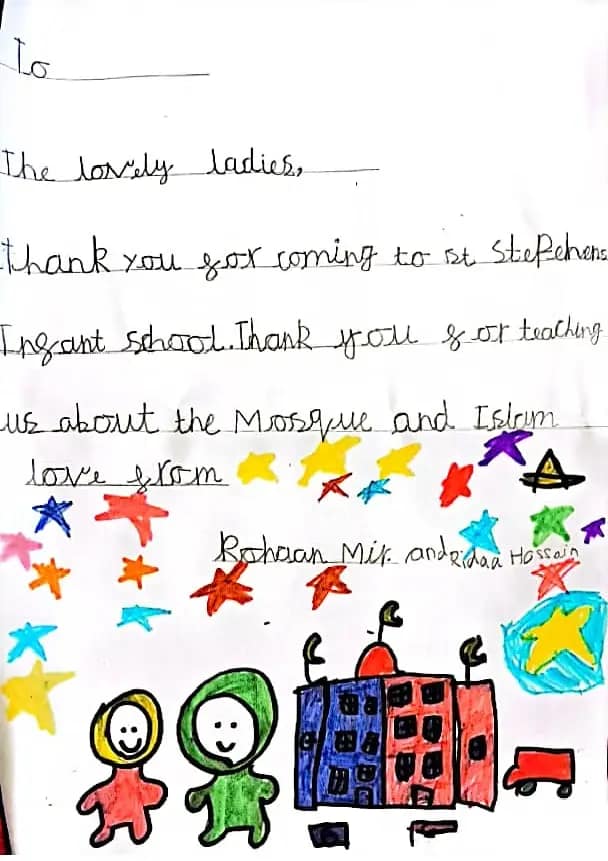 To
The lovely ladies,
Thank you for coming to st Stepehens
Infant school. Thank you for teaching
us about the Mosque and Islam
love from
Rohaan Mir. and Ridaa Hossain